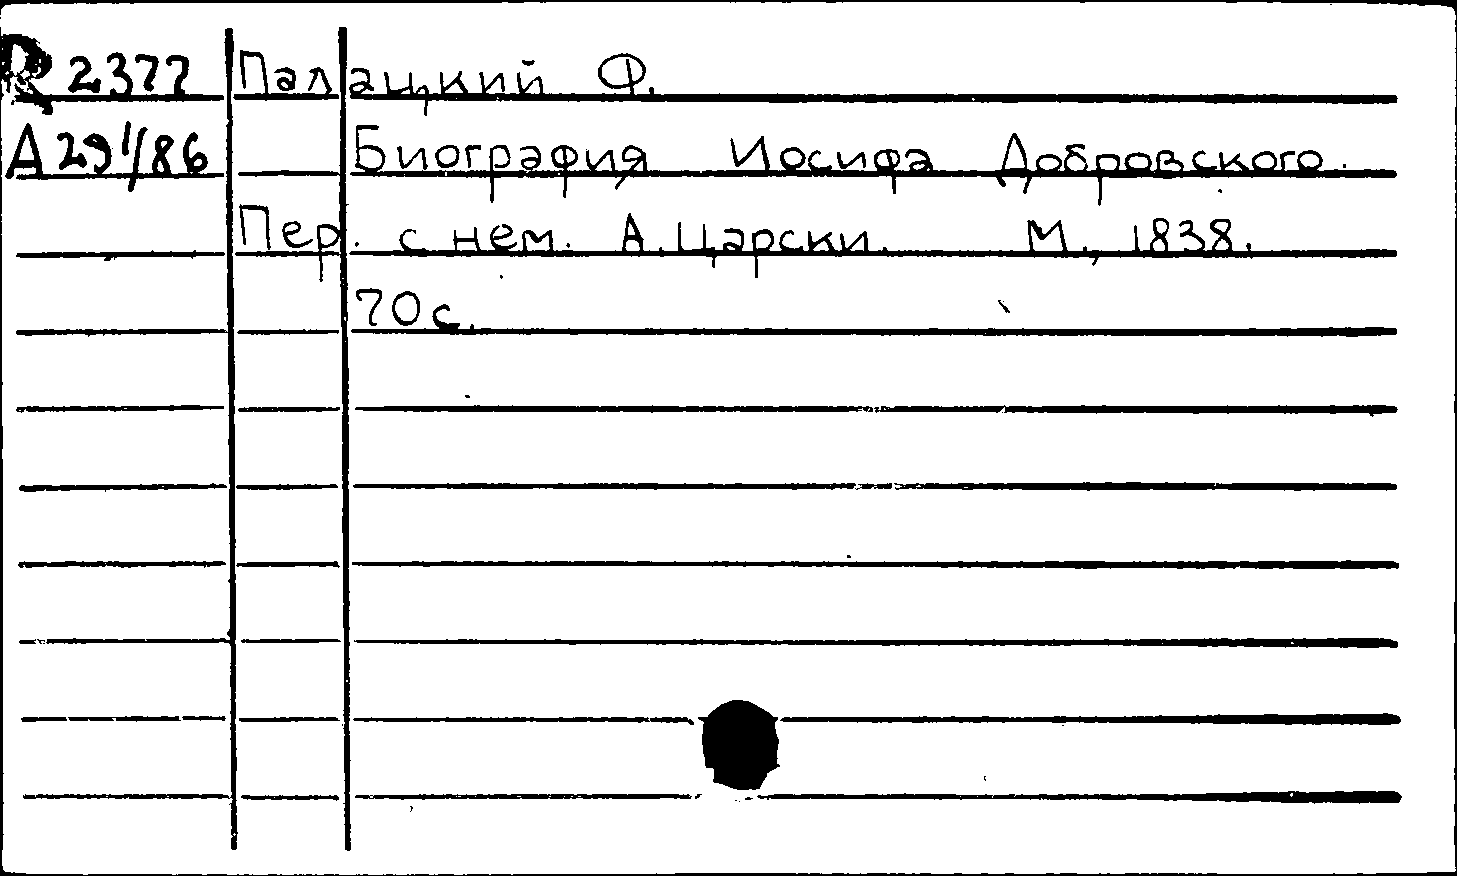 R 2377 Палацкий Ф.
A 29 1/86 Биография Иосифа Добровского.
Пер. с нем. А. Царски. М., 1838.
70 с.